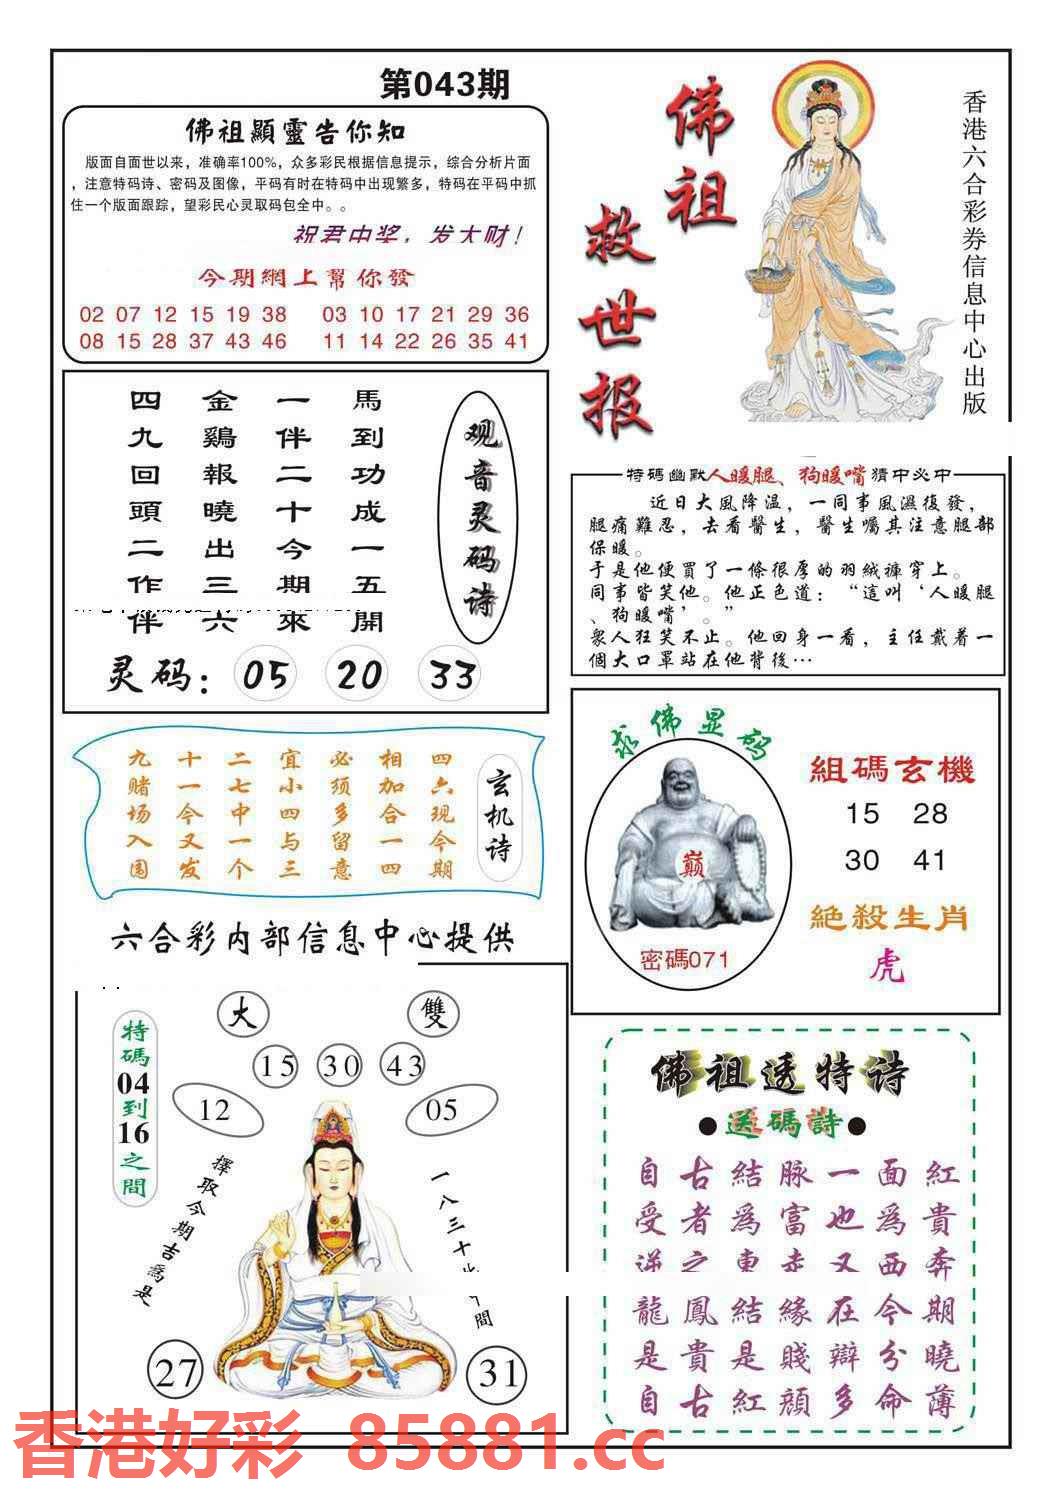 第043期
佛祖顯靈告你知
版面自面世以来，准确率100%，众多彩民根据信息提示，综合分析片面
，注意特码诗、密码及图像，平码有时在特码中出现繁多，特码在平码中抓
住一个版面跟踪，望彩民心灵取码包全中。。
祝君中奖，发大财！
今期網上幫你發
02 07 12 15 19 38 03 10 17 21 29 36
08 15 28 37 43 46 11 14 22 26 35 41
佛祖
救世报
香港六合彩券信息中心出版
观音灵码诗
馬到功成一五開
一伴二十今期來
金鷄報曉出三六
四九回頭二作伴
灵码：05 20 33
特碼幽默人暖腿、狗暖嘴猜中必中
近日大風降温，一同事風濕復發，
腿痛難忍，去看醫生，醫生囑其注意腿部
保暖。
于是他便買了一條很厚的羽絨褲穿上。
同事皆笑他。他正色道：“這叫‘人暖腿
、狗暖嘴’。”
衆人狂笑不止。他回身一看，主任戴着一
個大口罩站在他背後…
玄机诗
四六现今期
相加合一四
必须多留意
宜小四与三
二七中一个
十一今又发
九赌场入围
求佛显码
巅
密碼071
組碼玄機
15 28
30 41
絕殺生肖
虎
六合彩内部信息中心提供
大 雙
15 30 43
12 05
特碼04到16之間
擇取今期吉爲是
一八三十
間
27 31
佛祖透特诗
●送碼詩●
自古結脉一面紅
受者為富也為貴
逆之東赤又西奔
龍鳳結緣在今期
是貴是賤辯分曉
自古紅顔多命薄
香港好彩 85881.cc